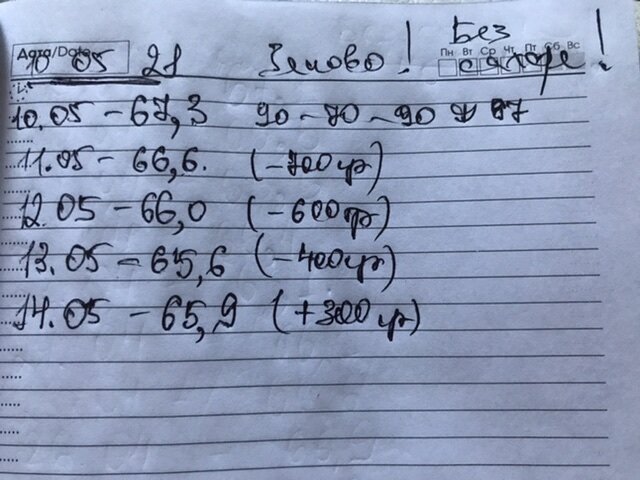 Дата/Date 10 05 21 Заново! Без сахара!
Пн Вт Ср Чт Пт Сб Вс
10.05 - 67,3 90 - 70 - 90 97
11.05 - 66,6. (-700гр)
12.05 - 66,0 (-600гр)
13.05 - 65,6 (-400гр)
14.05 - 65,9 (+300гр)